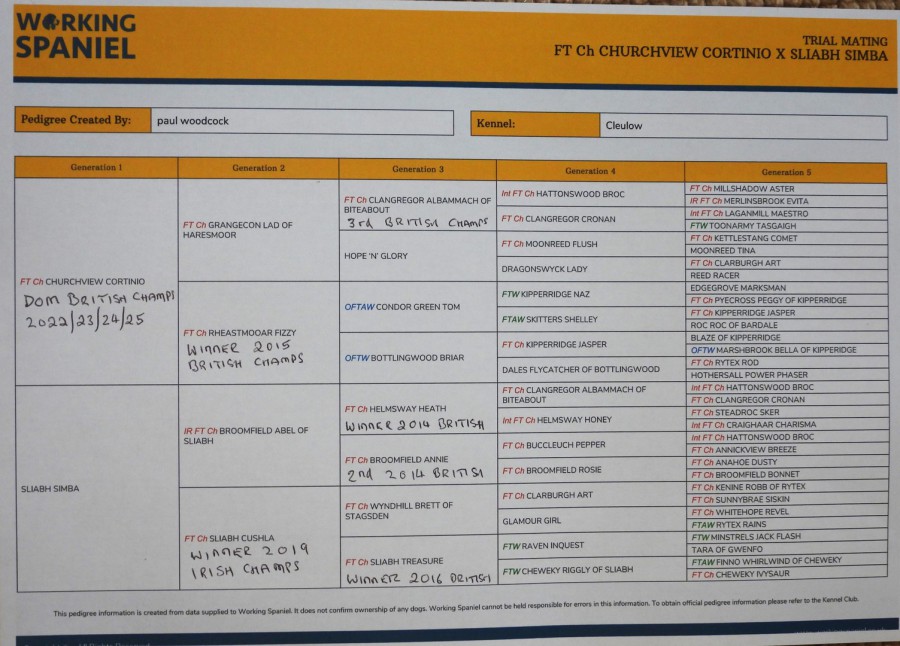 WORKING
SPANIEL
TRIAL MATING
FT Ch CHURCHVIEW CORTINIO X SLIABH SIMBA
Pedigree Created By: paul woodcock
Kennel: Cleulow
Generation 1 Generation 2 Generation 3 Generation 4 Generation 5
FT Ch CHURCHVIEW CORTINIO
DOM BRITISH CHAMPS
2022/23/24/25
SLIABH SIMBA
FT Ch GRANGECON LAD OF
HARESMOOR
FT Ch RHEASTMOOAR FIZZY
WINNER 2015
BRITISH CHAMPS
IR FT Ch BROOMFIELD ABEL OF
SLIABH
FT Ch SLIABH CUSHLA
WINNER 2019
IRISH CHAMPS
FT Ch CLANGREGOR ALBAMMACH OF
BITEABOUT
3rd BRITISH CHAMPS
HOPE 'N' GLORY
OFTAW CONDOR GREEN TOM
OFTW BOTTLINGWOOD BRIAR
FT Ch HELMSWAY HEATH
WINNER 2014 BRITISH
FT Ch BROOMFIELD ANNIE
2nd 2014 BRITISH
FT Ch WYNDHILL BRETT OF
STAGSDEN
FT Ch SLIABH TREASURE
WINNER 2016 BRITISH
Int FT Ch HATTONSWOOD BROC
FT Ch CLANGREGOR CRONAN
FT Ch MOONREED FLUSH
DRAGONSWYCK LADY
FTW KIPPERRIDGE NAZ
FTAW SKITTERS SHELLEY
FT Ch KIPPERRIDGE JASPER
DALES FLYCATCHER OF BOTTLINGWOOD
FT Ch CLANGREGOR ALBAMMACH OF
BITEABOUT
Int FT Ch HELMSWAY HONEY
FT Ch BUCCLEUCH PEPPER
FT Ch BROOMFIELD ROSIE
FT Ch CLARBURGH ART
GLAMOUR GIRL
FTW RAVEN INQUEST
FTW CHEWEKY RIGGLY OF SLIABH
FT Ch MILLSHADOW ASTER
IR FT Ch MERLINSBROOK EVITA
Int FT Ch LAGANMILL MAESTRO
FTW TOONARMY TASGAIGH
FT Ch KETTLESTANG COMET
MOONREED TINA
FT Ch CLARBURGH ART
REED RACER
EDGEGROVE MARKSMAN
FT Ch PYECROSS PEGGY OF KIPPERIDGE
FT Ch KIPPERIDGE JASPER
ROC ROC OF BARDALE
BLAZE OF KIPPERIDGE
OFTW MARSHBROOK BELLA OF KIPPERIDGE
FT Ch RYTEX ROD
HOTHERSALL POWER PHASER
Int FT Ch HATTONSWOOD BROC
FT Ch CLANGREGOR CRONAN
FT Ch STEADROC SKER
Int FT Ch CRAIGHAAR CHARISMA
Int FT Ch HATTONSWOOD BROC
FT Ch ANNICKVIEW BREEZE
FT Ch ANAHOE DUSTY
FT Ch BROOMFIELD BONNET
FT Ch KENINE ROBB OF RYTEX
FT Ch SUNNYBRAE SISKIN
FT Ch WHITEHOPE REVEL
FTAW RYTEX RAINS
FTW MINSTRELS JACK FLASH
TARA OF GWENFO
FTAW FINNO WHIRLWIND OF CHEWEKY
FT Ch CHEWEKY IVYSAUR
This pedigree information is created from data supplied to Working Spaniel. It does not confirm ownership of any dogs. Working Spaniel cannot be held responsible for errors in this information. To obtain official pedigree information please refer to the Kennel Club.